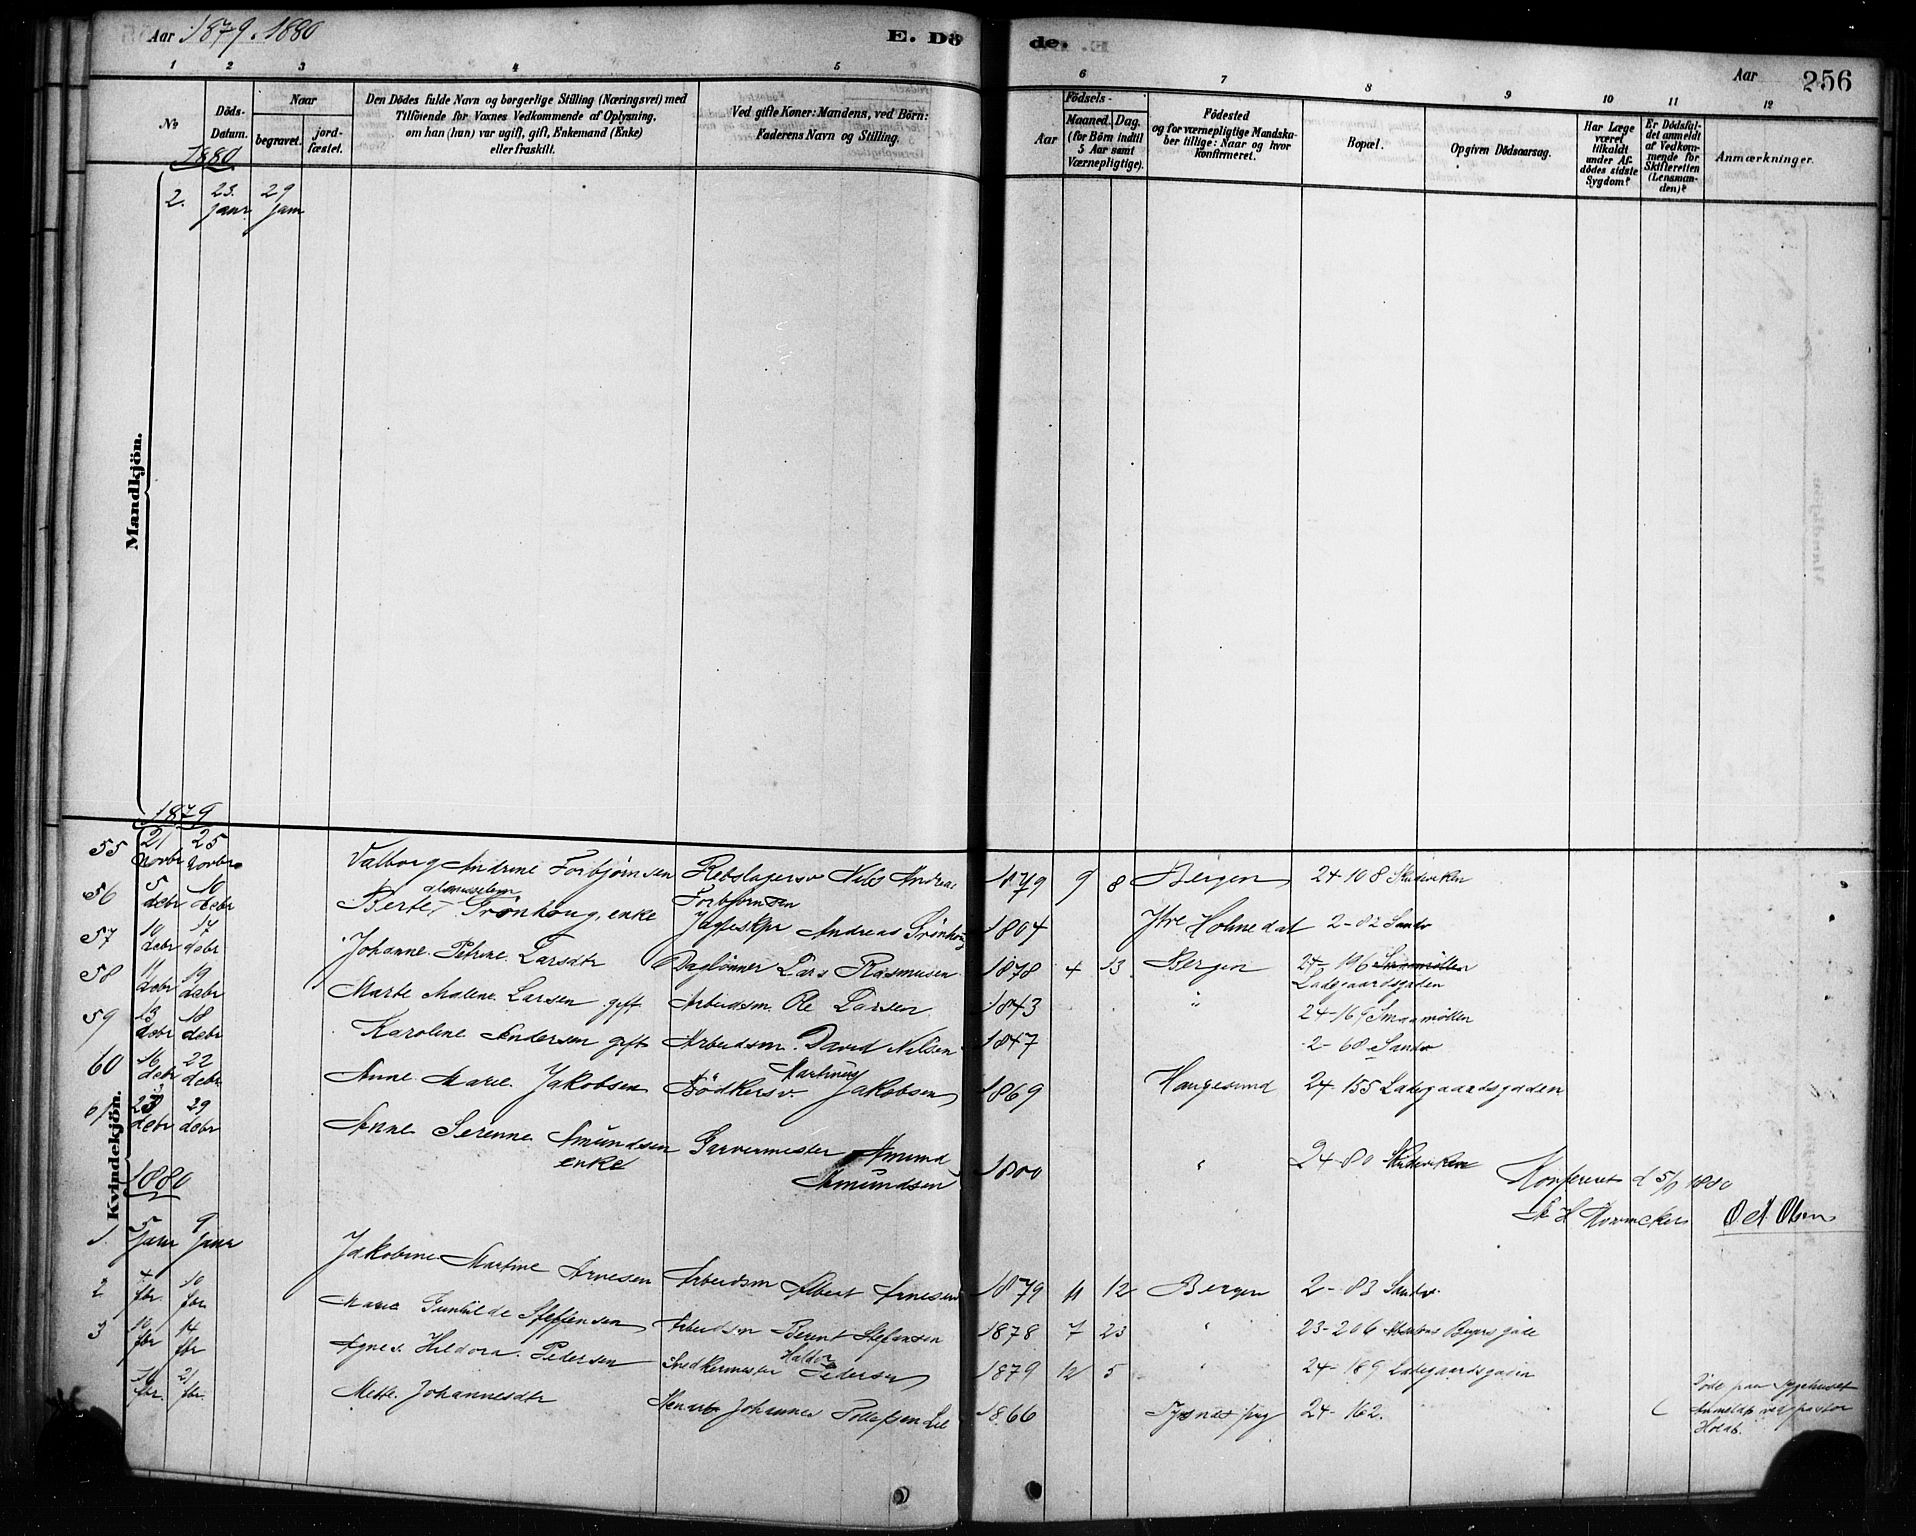 Aar 1879. 1880
E. Dö
de.
Aar
256
1 2 3 4 5 6 7 8 9 10 11 12
№
Döds-Datum.
Naar
begravet.
jord-fæstet.
Den Dödes fulde Navn og borgerlige Stilling (Næringsvei) med
Tilföiende for Voxnes Vedkommende af Oplysning,
om han (hun) var ugift, gift, Enkemand (Enke)
eller fraskilt.
Ved gifte Koner: Mandens, ved Börn:
Faderens Navn og Stilling.
Aar
Födsels-
Maaned. Dag.
(for Börn indtil
5 Aar samt
Værnepligtige).
Födested
og for værnepligtige Mandska-
ber tillige: Naar og hvor
konfirmeret.
Bopæl.
Opgiven Dödsaarsag.
Har Læge
været
tilkaldt
under Af-
dödes sidste
Sygdom?
Er Dödsfal-
det anmeldt
af Vedkom-
mende for
Skifteretten
(Lensman-
den)?
Anmærkninger.
1880
2. 23. janr 29 janr
Mandkjön.
Kvindekjön.
1879
55 21 novbr 25 novbr Valborg Andrine Torbjörnsen Rebslagersv Nils Andreas Torbjörnsen 1879 9 8 Bergen 24-108 Skudeviken
56 5 debr 10 debr Berte Grönhoug, enke Jagteskpr Andreas Grönhoug 1804 Ytre Holmedal 2-82 Sandv
57 10 debr 17 debr Johanne Petrine Larsdtr Daglönner Lars Rasmusen 1878 4 13 Bergen 24-196 Smaamöllen
Ladegaardsgaden
58 11 debr 19 debr Marte Malene Larsen gift Arbeidsm Ole Larsen 1843 " 24-169 Smaamöllen
59 13 debr 18 debr Karoline Andersen gift Arbeidsm. David Nilsen 1847 2-60 Sandv
60 16 debr 22 debr Anne Marie Jakobsen Bödkersv. Martinus Jakobsen 1869 Haugesund 24-155 Ladegaardsgaden
61 23 debr 29 debr Anne Serenne Amundsen enke Garvermester Amund Amundsen 1800 " 24-80 Skudeviken
Konfereret d 5/1 1880
O A Olsen
1880
1 5 janr 9 janr Jakobine Martine Arnesen Arbeidsm Albert Arnesen 1879 11 12 Bergen 2-83 Sandv.
2 4 fbr 10 fbr. Marie Gunhilde Steffensen Arbeidsm Berent Stefansen 1878 7 23 " 23-206 Absalons Beyers gade
3 10 fbr 14 fbr Agnes Hildora Pedersen Snedkermester Haldor Pedersen 1879 12 5 " 24-189 Ladegaardsgaden
16 fbr. 21 fbr. Mette Johannesdtr Johannes Tollefsen 1866 Tysnes 24-162.
Döde paa Sygehuset
Anmeldt ved pastor